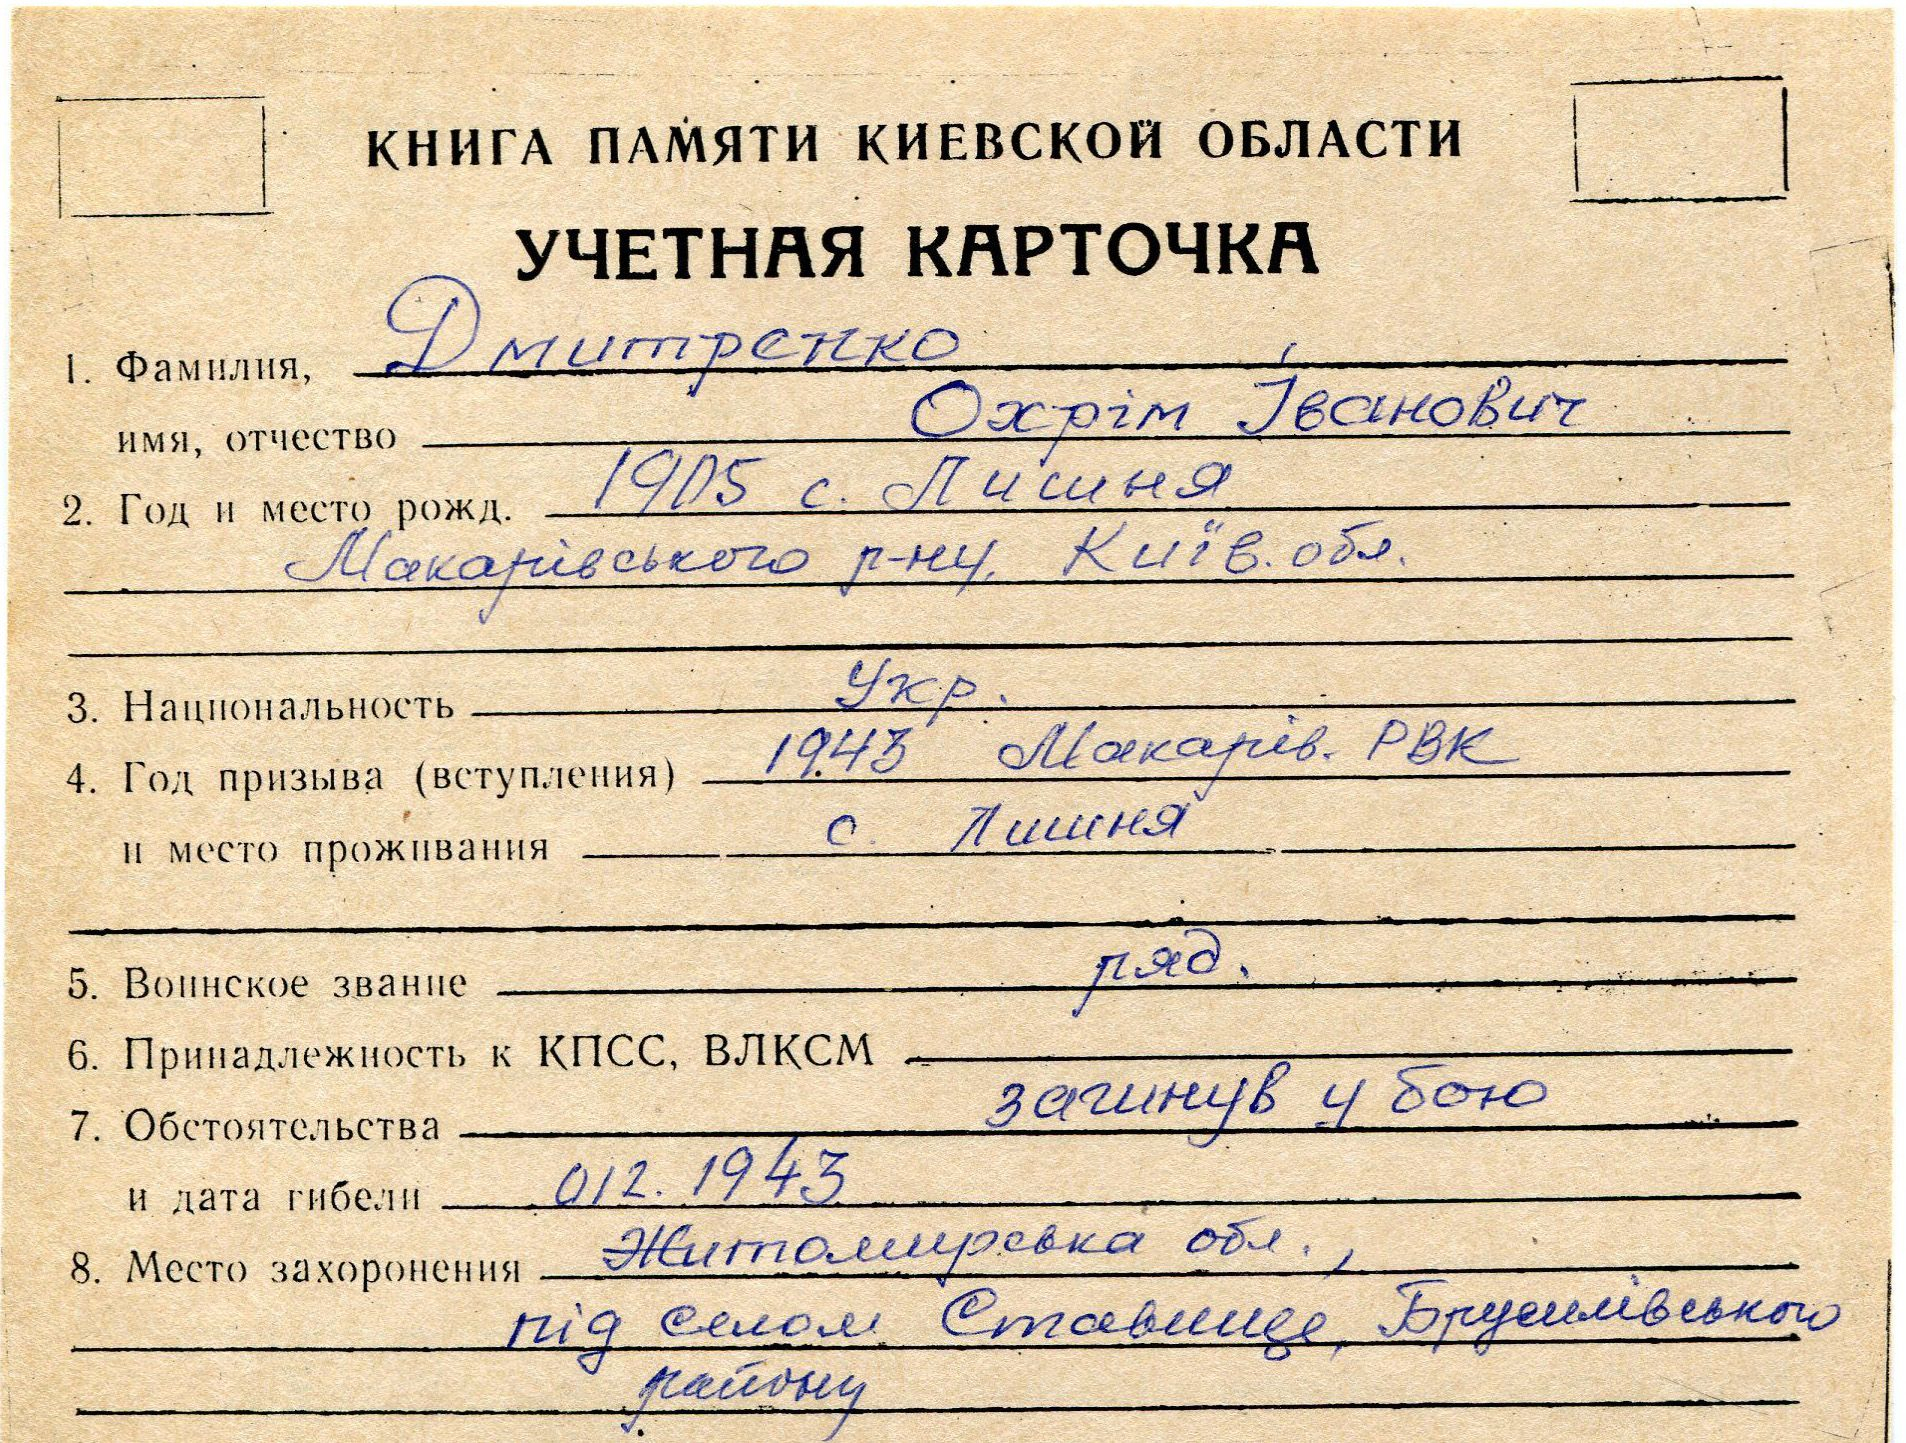 КНИГА ПАМЯТИ КИЕВСКОЙ ОБЛАСТИ
УЧЕТНАЯ КАРТОЧКА
1. Фамилия, Дмитренко
имя, отчество Охрім Іванович
2. Год и место рожд. 1905 с. Лишня
Макарівського р-ну, Київ. обл.
3. Национальность Укр.
4. Год призыва (вступления) 1943 Макарів. РВК
и место проживания с. Лишня
5. Воинское звание ряд.
6. Принадлежность к КПСС, ВЛКСМ
7. Обстоятельства загинув у бою
и дата гибели 012. 1943
8. Место захоронения Житомирська обл.,
під селом Ставище, Брусилівського
району